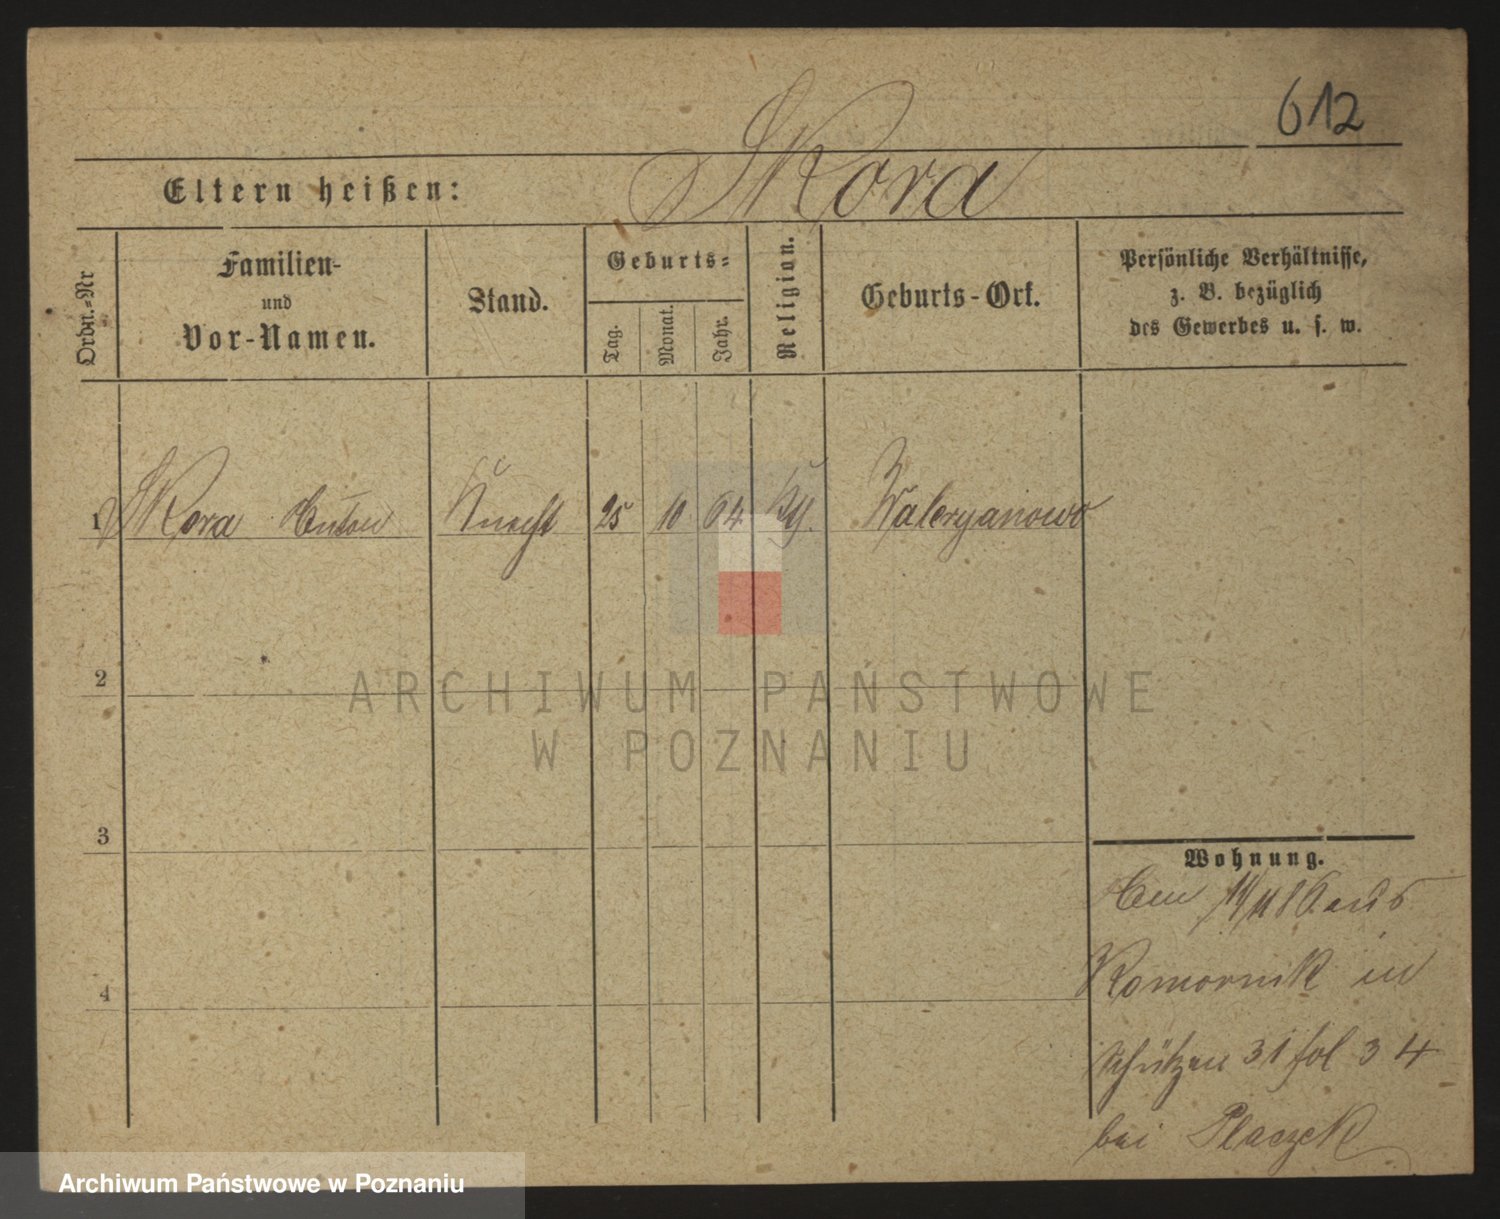 612
Skora
Eltern heißen:
Ordn.-Nr
Familien-
und
Vor-Namen.
Stand.
Geburts-
Tag.
Monat.
Jahr.
Religian.
Geburts-Ort.
Persönliche Verhältnisse,
z. B. bezüglich
des Gewerbes u. s. w.
1 Skora Anton Knecht 25 10 64 Waleryanowo
2
ARCHIWUM PAŃSTWOWE
W POZNANIU
3
4
Wohnung.
Den 11/11 86 aus
Komornik in
Schützen 31 fol 34
bei Placzek
Archiwum Państwowe w Poznaniu